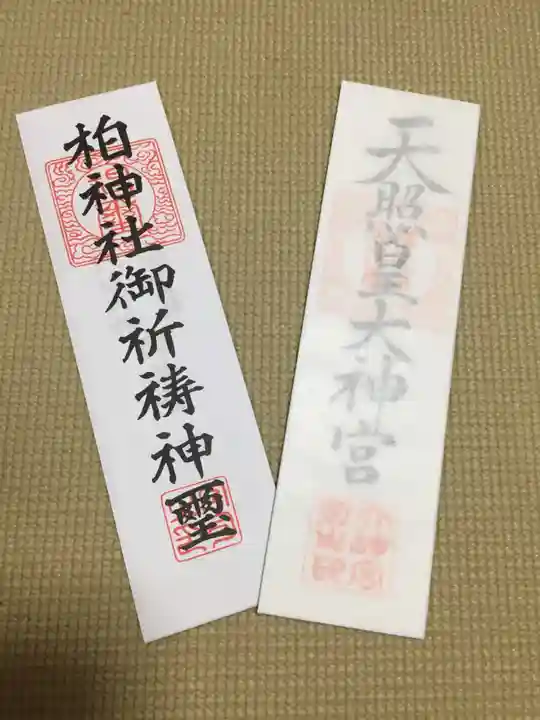 柏神社御祈祷神璽
天照皇大神宮